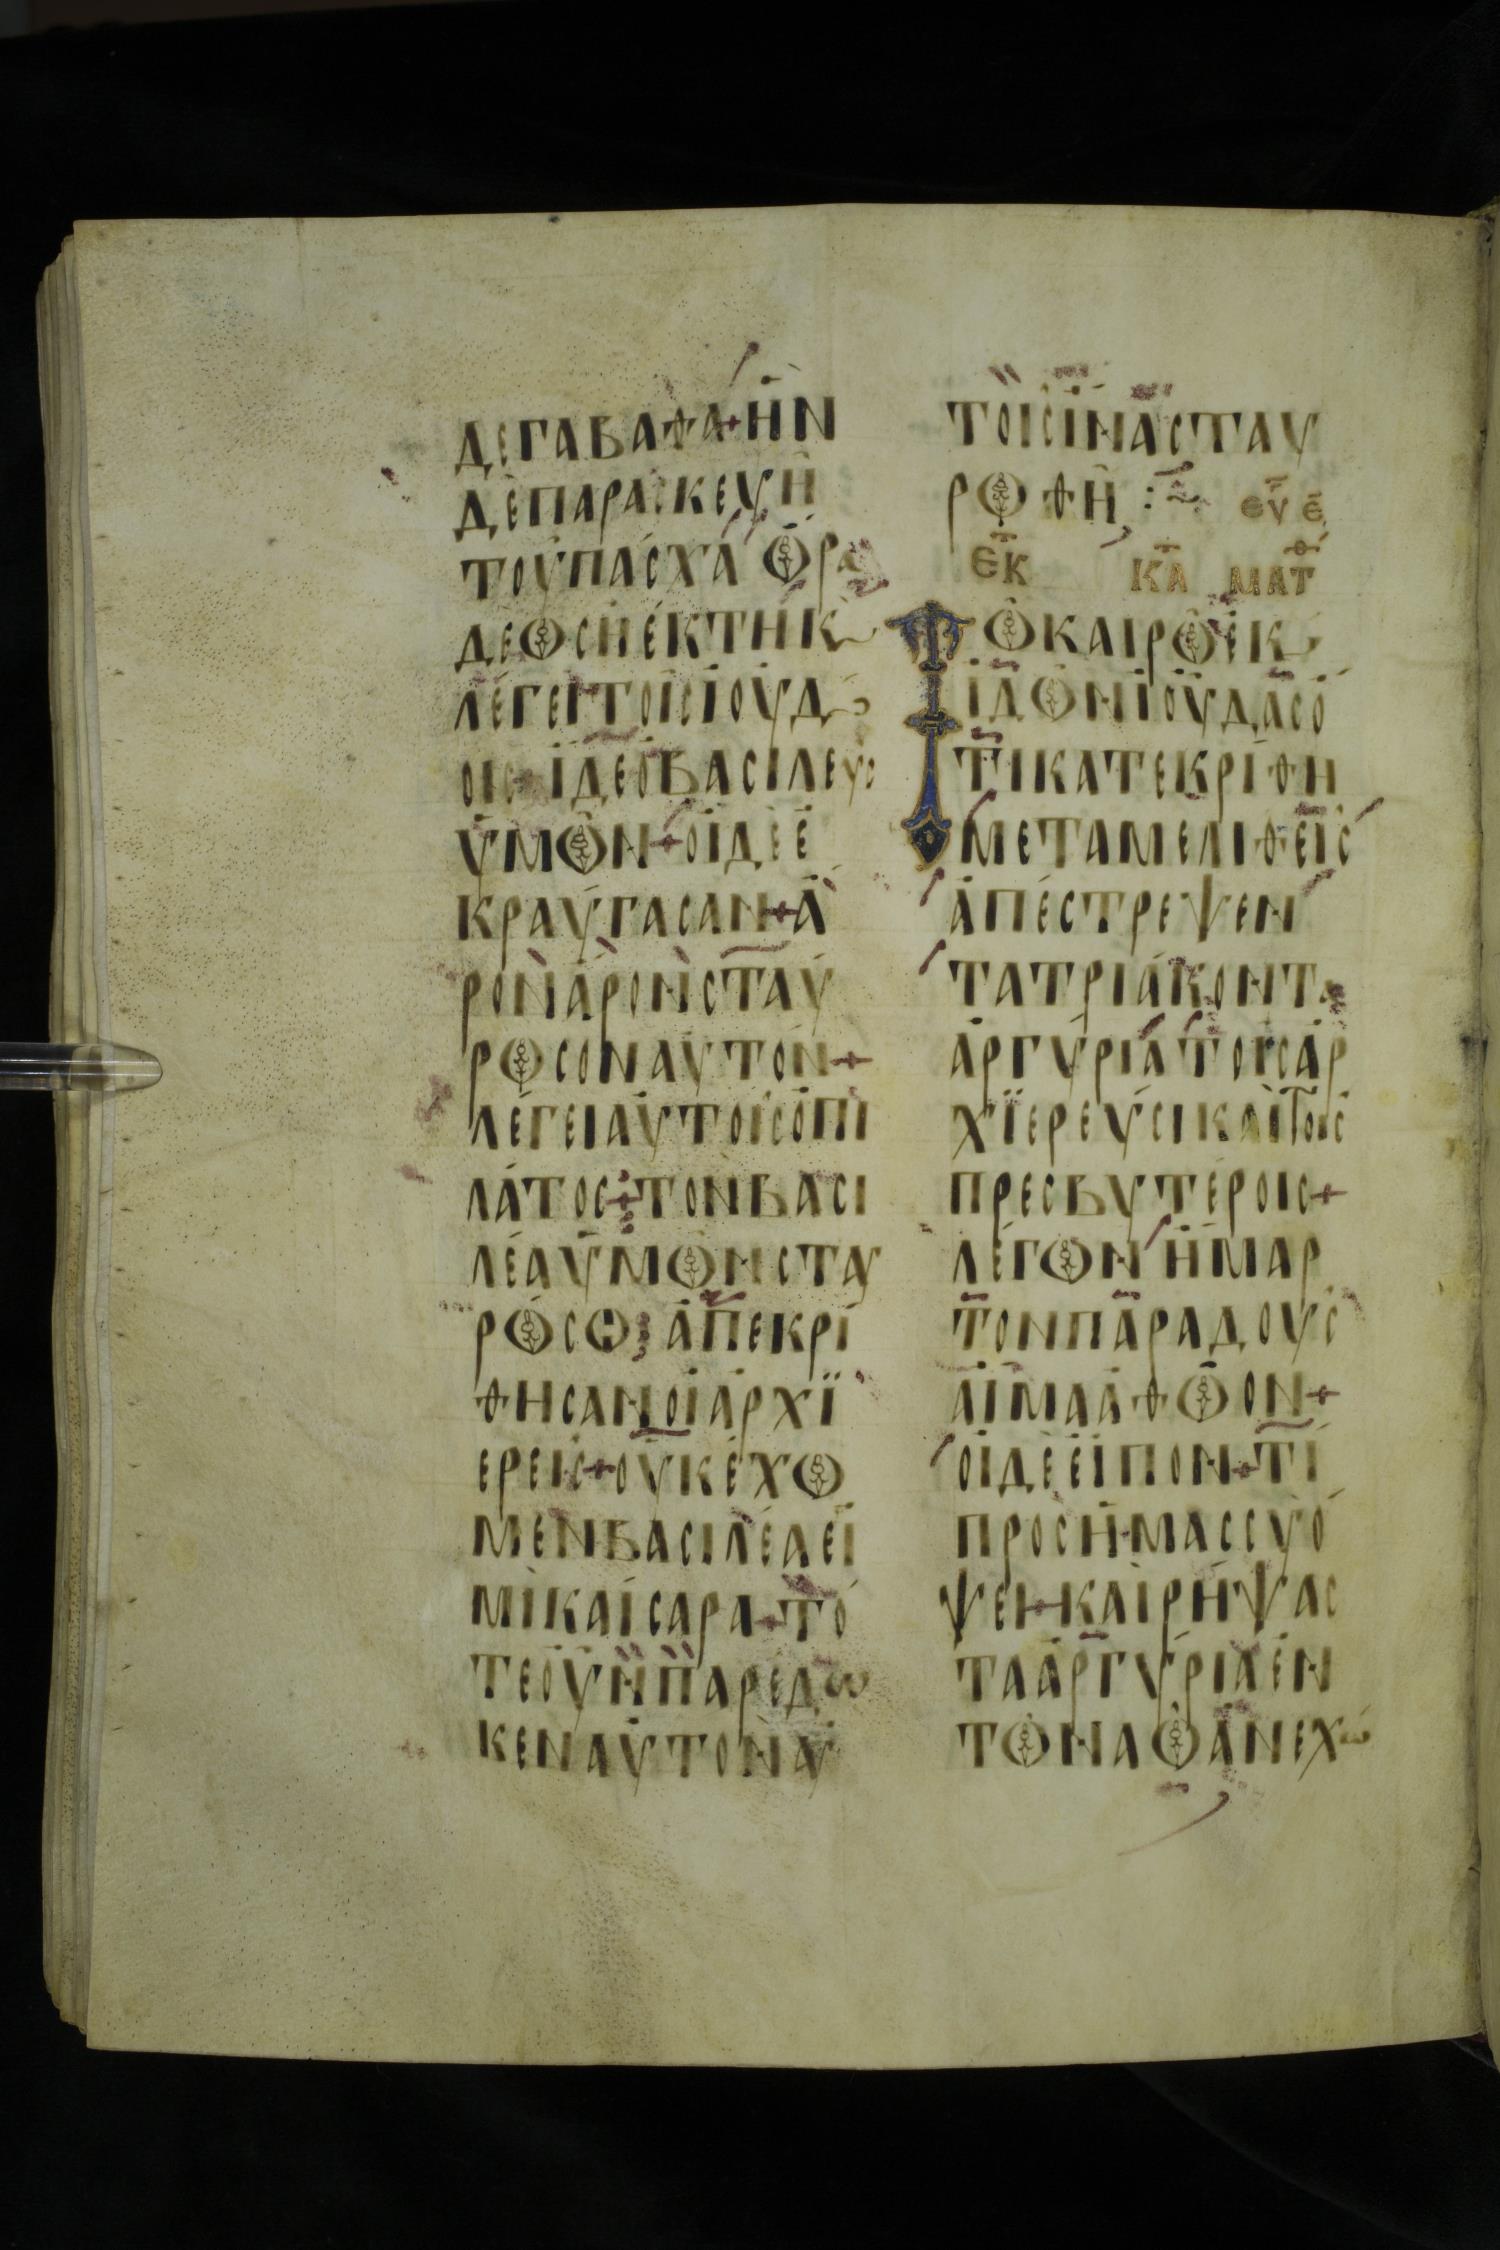 ΔΕΓΑΒΑΘΑ+ΗΝ
ΔΕΠΑΡΑΣΚΕΥΗ
ΤΟΥΠΑΣΧΑΩΡΑ
ΔΕΩΣΗΕΚΤΗΚ
ΛΕΓΕΙΤΟΙΣΪΟΥΔ
ΟΙΣ+ΪΔΕΟΒΑΣΙΛΕΥΣ
ΥΜΩΝ+ΟΙΔΕΕ
ΚΡΑΥΓΑΣΑΝ+Α
ΡΟΝΑΡΟΝΣΤΑΥ
ΡΩΣΟΝΑΥΤΟΝ+
ΛΕΓΕΙΑΥΤΟΙΣΟΠΙ
ΛΑΤΟΣ+ΤΟΝΒΑΣΙ
ΛΕΑΥΜΩΝΣΤΑΥ
ΡΩΣΩ;ΑΠΕΚΡΙ
ΘΗΣΑΝΟΙΑΡΧΪ
ΕΡΕΙΣ+ΟΥΚΕΧΩ
ΜΕΝΒΑΣΙΛΕΑΕΙ
ΜΙΚΑΙΣΑΡΑ+ΤΟ
ΤΕΟΥΝΠΑΡΕΔΩ
ΚΕΝΑΥΤΟΝΑΥ
ΤΟΙΣΙΝΑΣΤΑΥ
ΡΩΘΗ:~ ΕΥ Ε
ΕΚ ΚΑ ΜΑΤΘ
ΤΩΚΑΙΡΩΕΚ
ΙΔΩΝΙΟΥΔΑΣΟ
ΤΙΚΑΤΕΚΡΙΘΗ
ΜΕΤΑΜΕΛΙΘΕΙΣ
ΑΠΕΣΤΡΕΨΕΝ
ΤΑΤΡΙΑΚΟΝΤΑ
ΑΡΓΥΡΙΑΤΟΙΣΑΡ
ΧΪΕΡΕΥΣΙΚΑΙΤΟΙΣ
ΠΡΕΣΒΥΤΕΡΟΙΣ+
ΛΕΓΩΝΗΜΑΡ
ΤΟΝΠΑΡΑΔΟΥΣ
ΑΙΜΑΑΘΩΟΝ+
ΟΙΔΕΕΙΠΟΝ+ΤΙ
ΠΡΟΣΗΜΑΣΣΥΟ
ΨΕΙ+ΚΑΙΡΗΨΑΣ
ΤΑΑΡΓΥΡΙΑΕΝ
ΤΩΝΑΩΑΝΕΧΩ